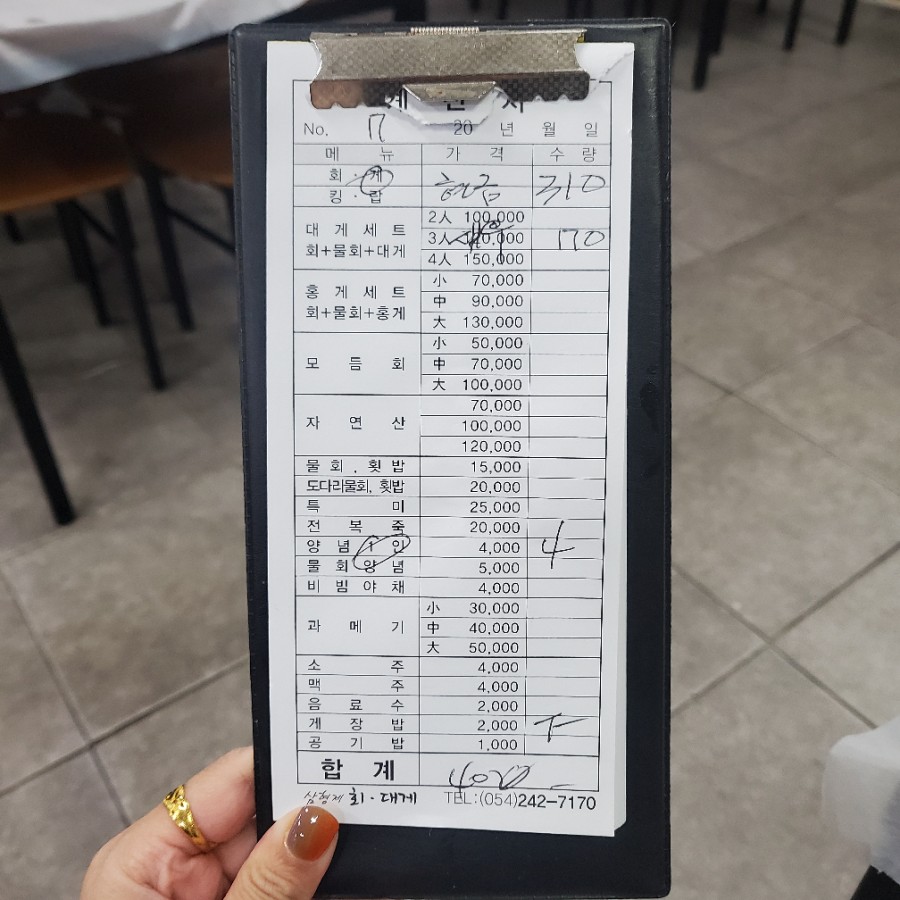 계 산 서
No. 17 20 년 월 일
메 뉴 가 격 수 량
회 · 게 현금 310
킹 · 랍
대 게 세 트 2人 100,000
회+물회+대게 3人 ,000 170
4人 150,000
홍 게 세 트 小 70,000
회+물회+홍게 中 90,000
大 130,000
小 50,000
모 듬 회 中 70,000
大 100,000
70,000
자 연 산 100,000
120,000
물 회 , 횟 밥 15,000
도다리물회, 횟밥 20,000
특 미 25,000
전 복 죽 20,000
양 념 1 인 4,000 4
물 회 양 념 5,000
비 빔 야 채 4,000
小 30,000
과 메 기 中 40,000
大 50,000
소 주 4,000
맥 주 4,000
음 료 수 2,000
게 장 밥 2,000
공 기 밥 1,000
합 계
삼형제 회·대게 TEL:(054)242-7170